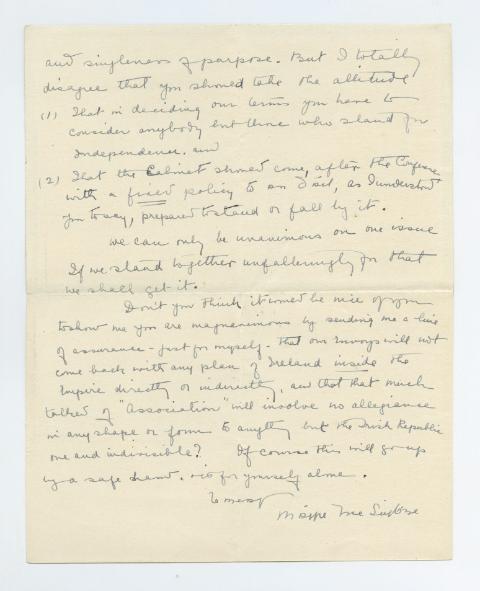 and singleness of purpose. But I totally
disagree that you should take the attitude
(1) That in deciding our terms you have to
consider anybody but those who stand for
Independence. and
(2) That the Cabinet should come, after the Conference
with a fixed policy to an Dáil, as I understood
you to say, prepared to stand or fall by it.
We can only be unanimous on one issue
If we stand together unfalteringly for that
we shall get it.
Don't you think it would be nice of you
to show me you are magnanimous by sending me a line
of assurance - just for myself - that our Envoys will not
come back with any plan of Ireland inside the
Empire directly or indirectly, and that that much
talked of "Association" will involve no allegiance
in any shape or form to anything but the Irish Republic
one and indivisible? Of course this will go up
by a safe hand. for yourself alone.
Máire Mac Swiney